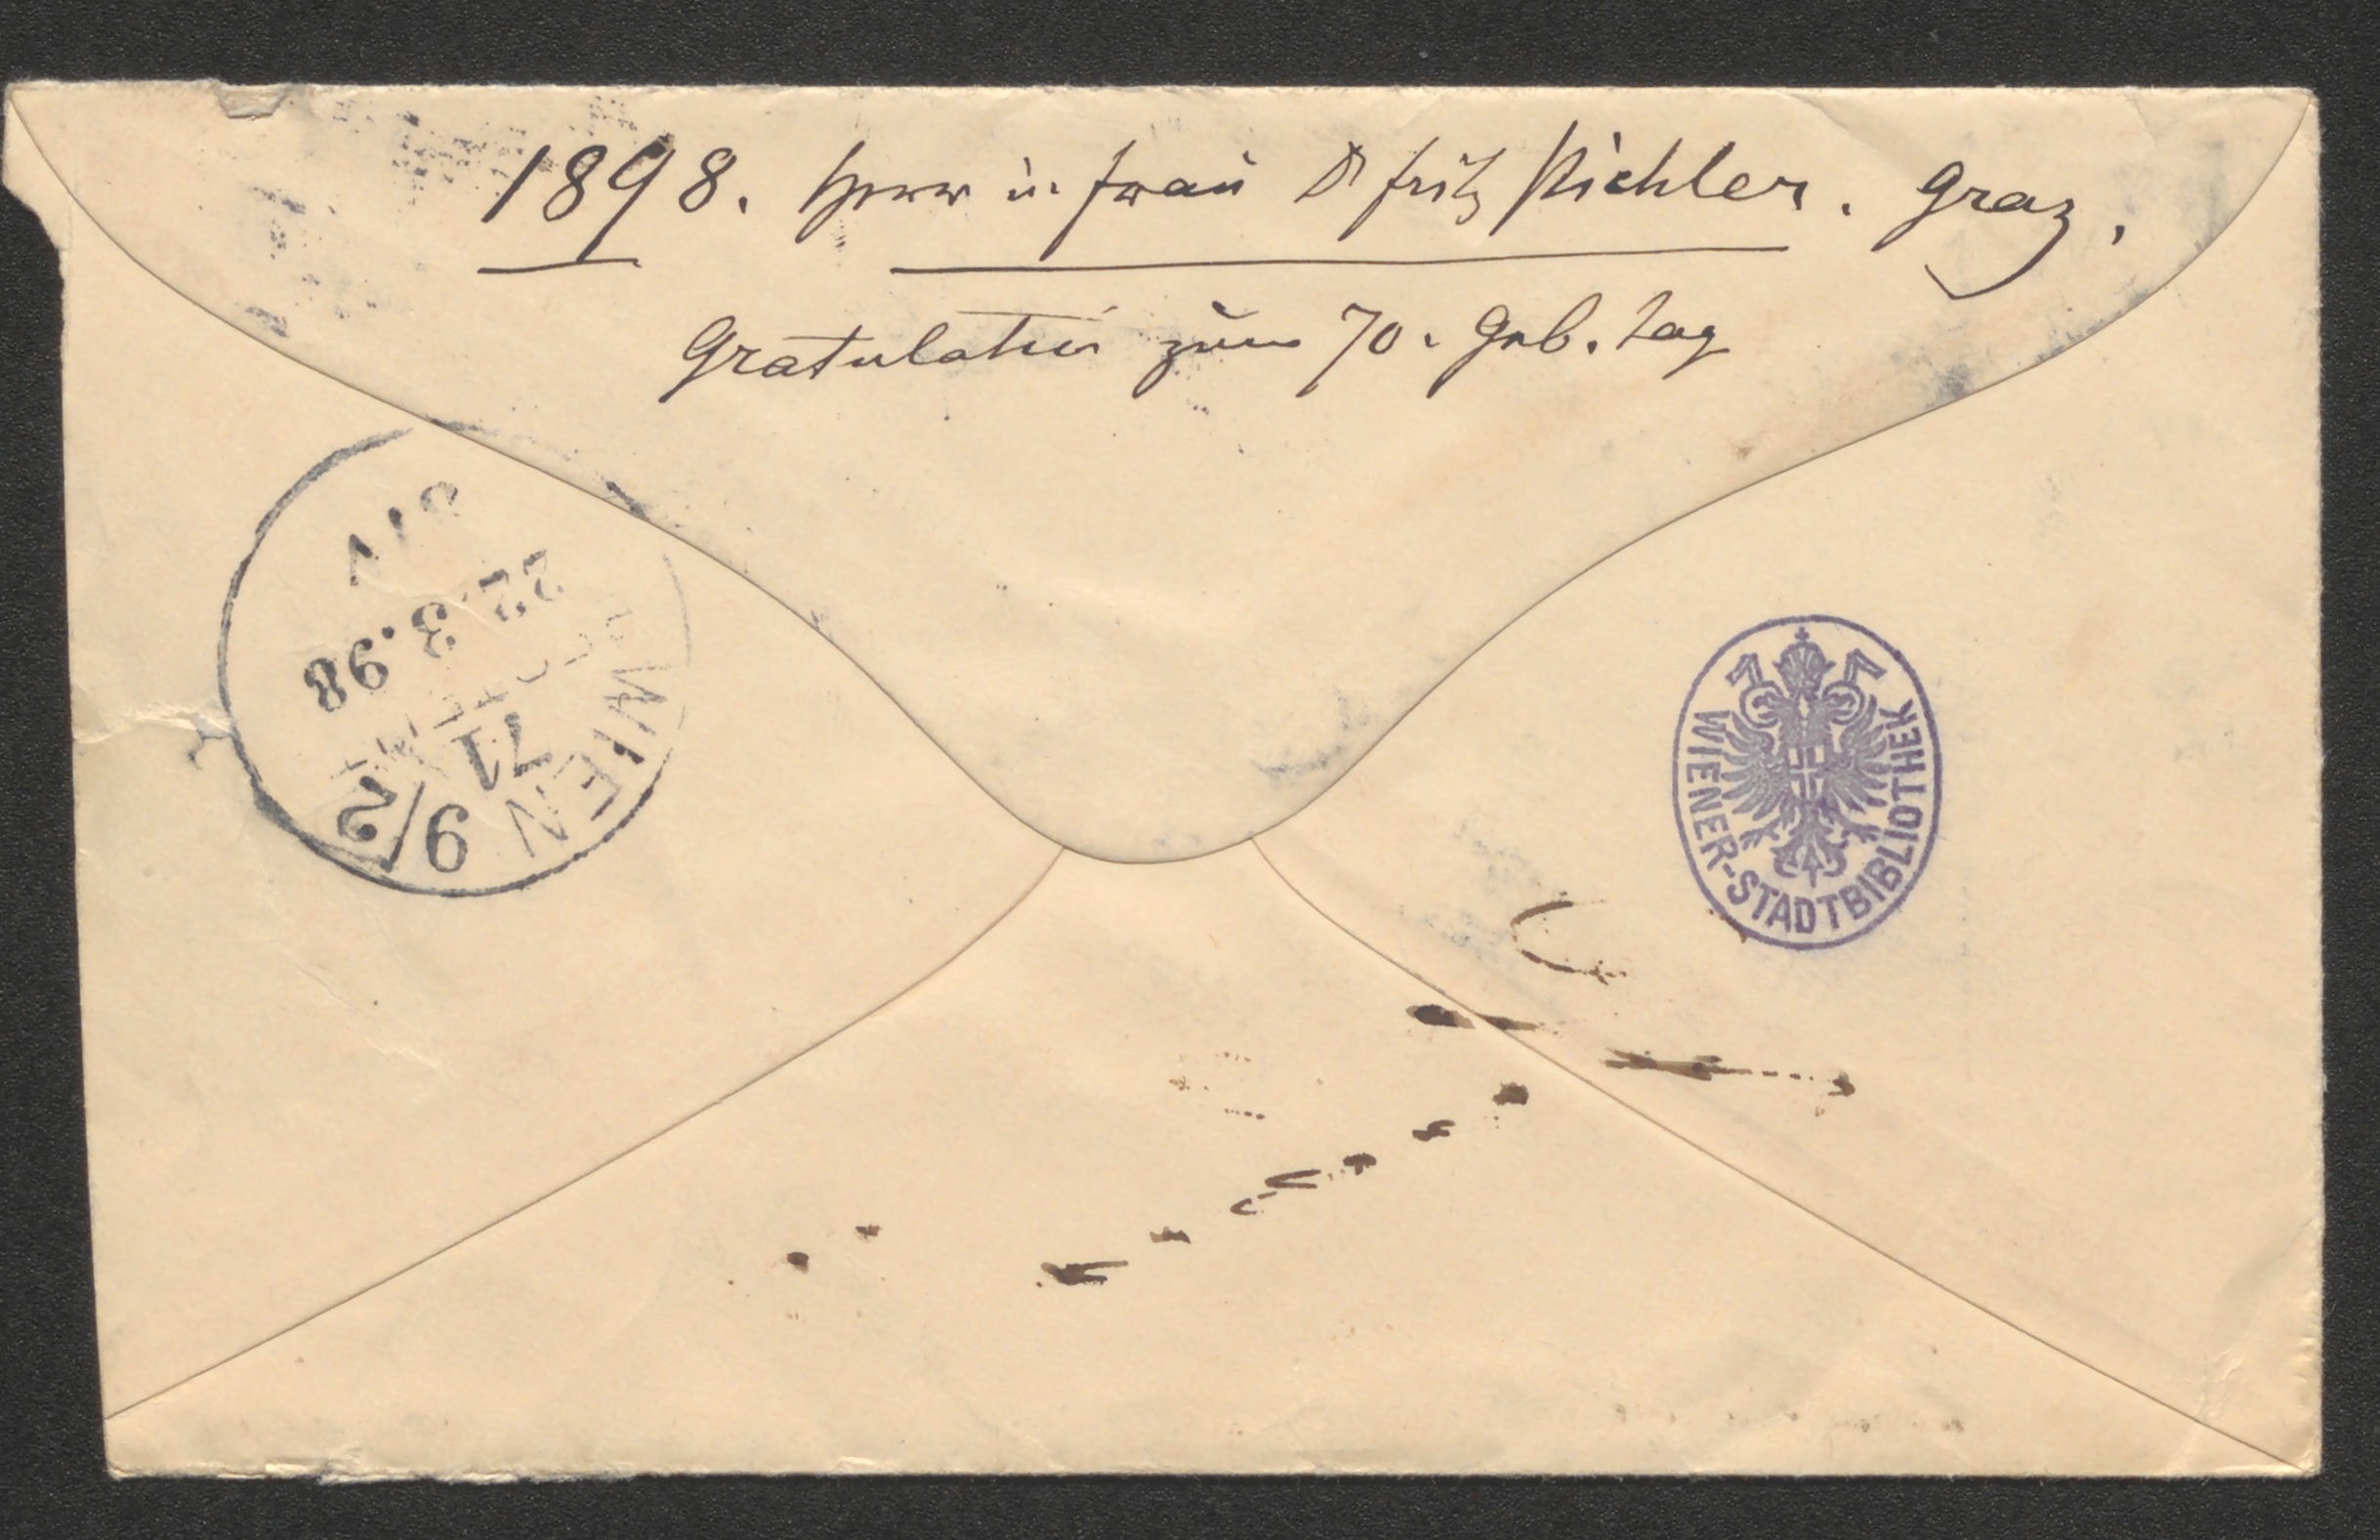 1898. Herr u. Frau Dr Fritz Pichler. Graz,
Gratulation zum 70. Geb. Tag
WIEN 9/2
71
22.3.98
WIENER-STADTBIBLIOTHEK